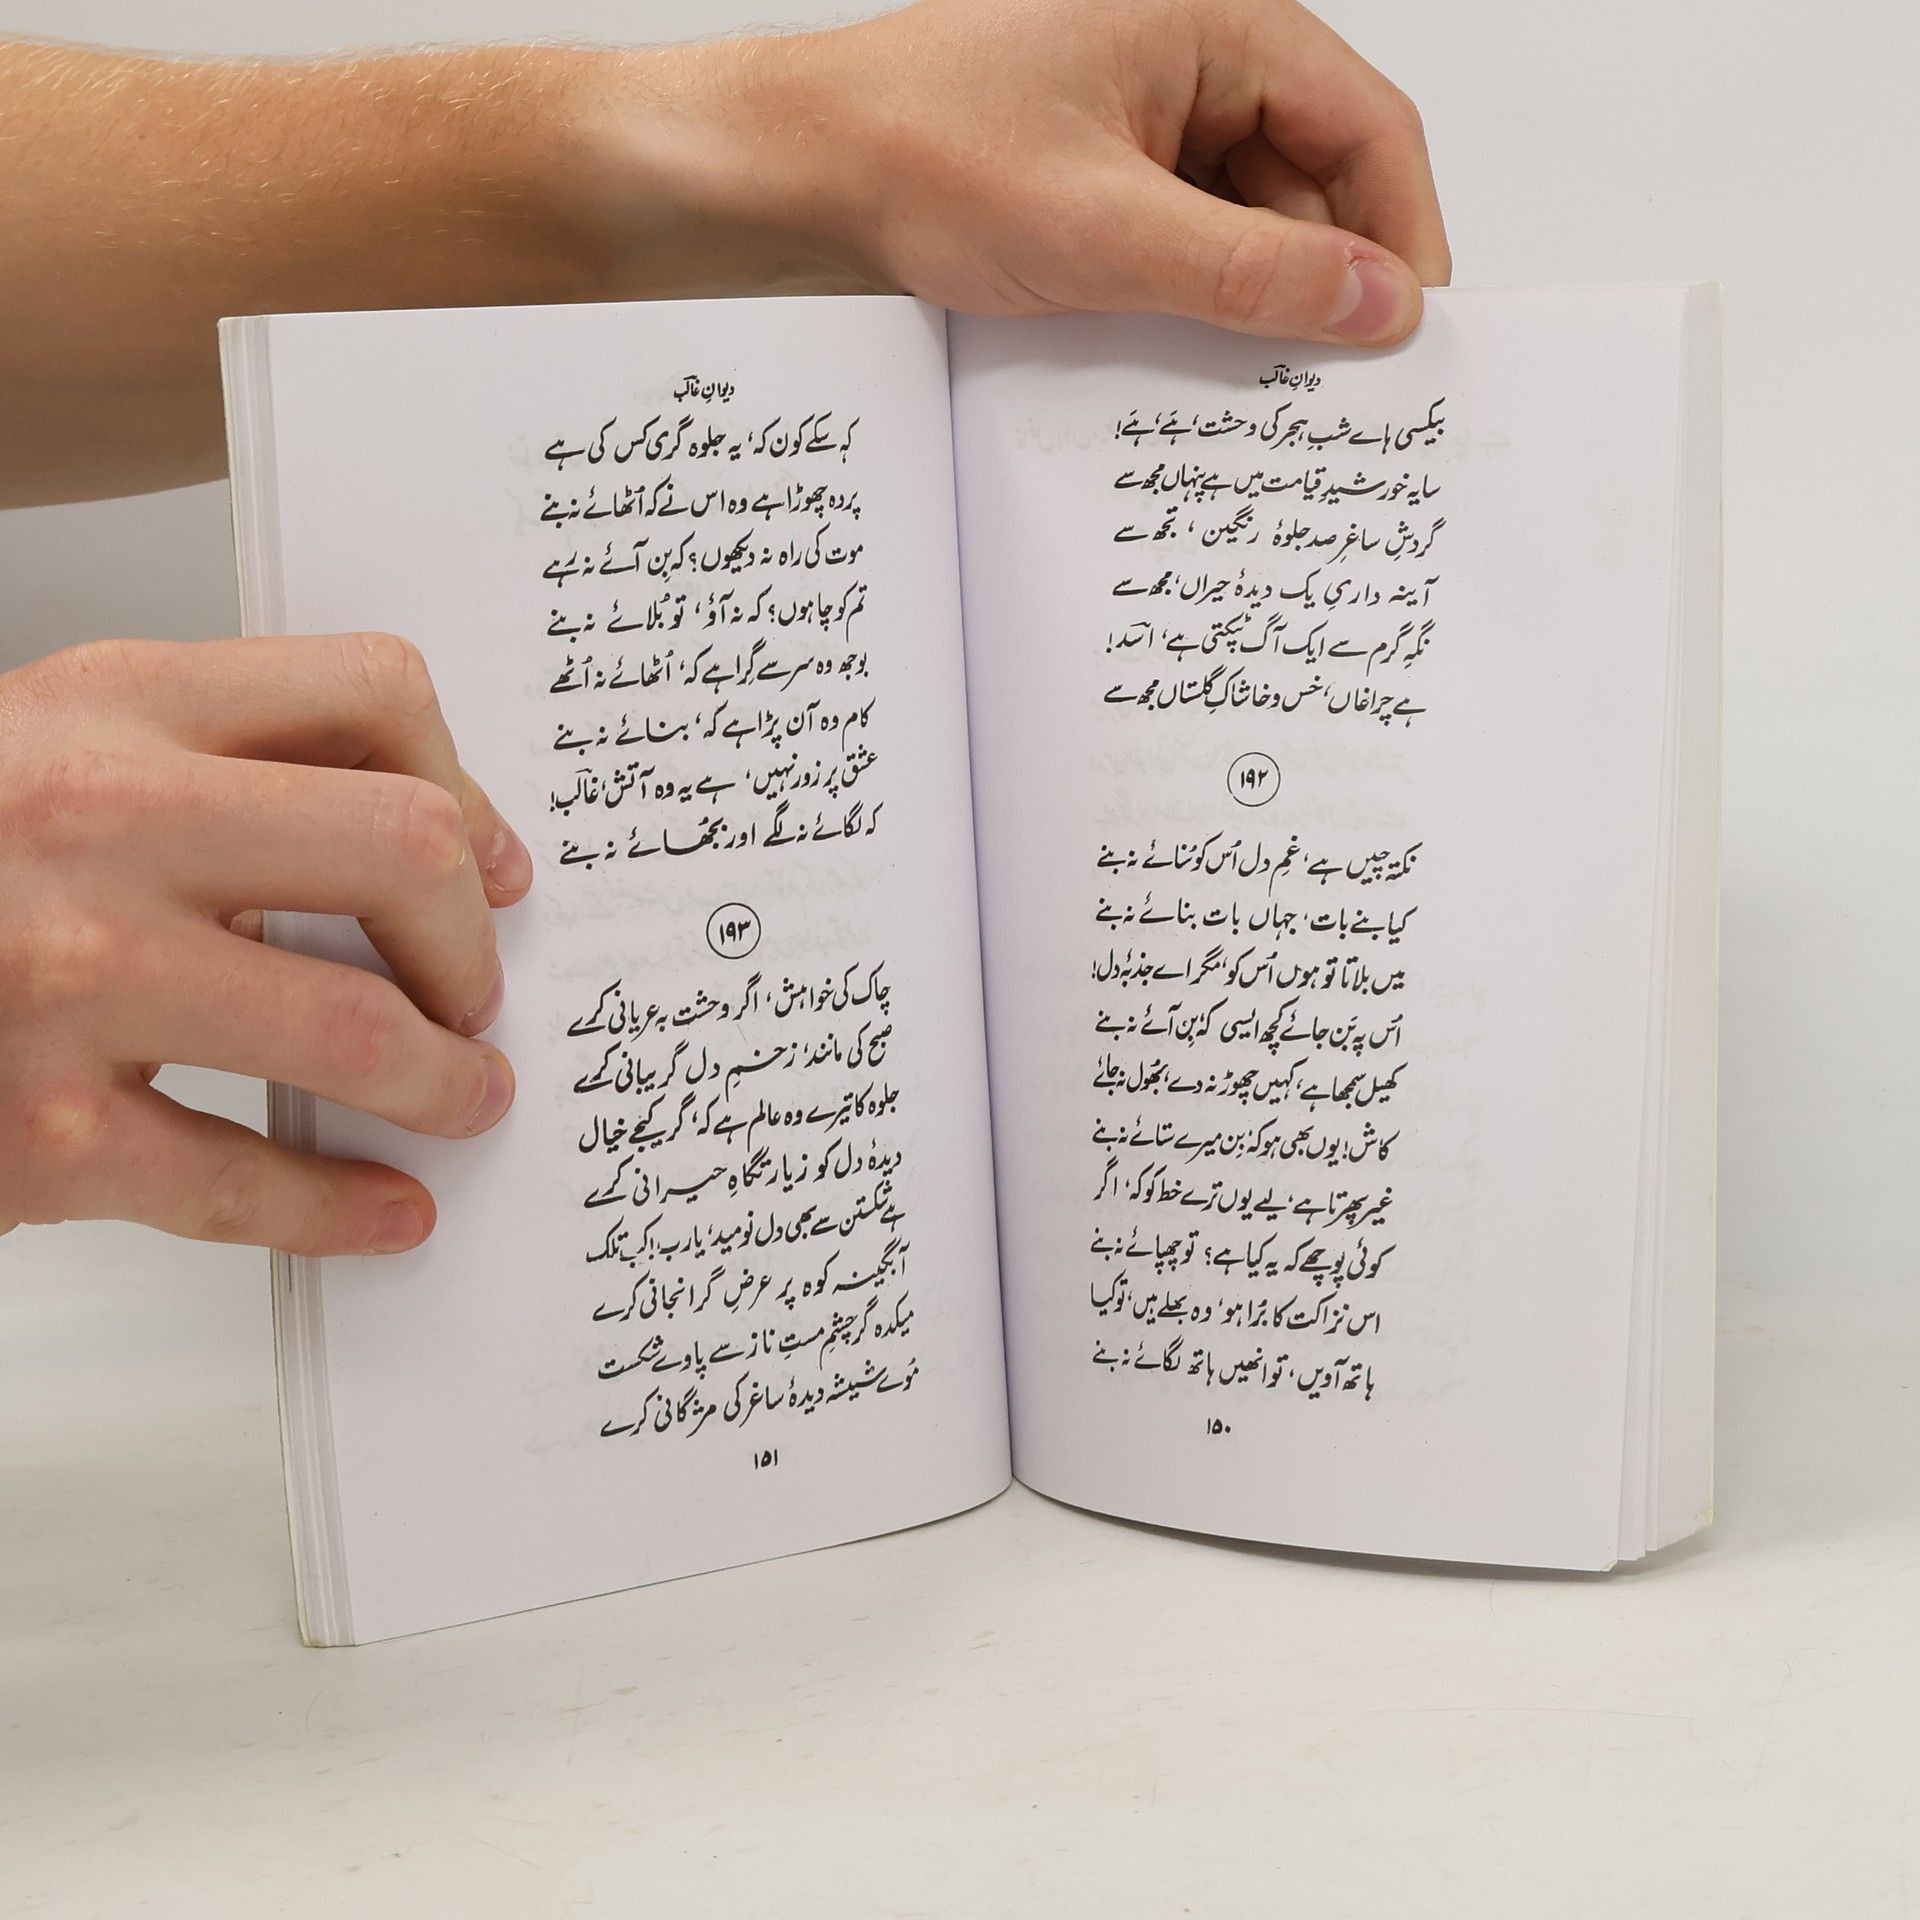 دیوانِ غالب
بیکسی ہاے شبِ ہجر کی وحشت، ہَے، ہَے!
سایہ خورشیدِ قیامت میں ہے پنہاں مجھ سے
گردشِ ساغرِ صد جلوۂ رنگین، تجھ سے
آینہ داریِ یک دیدۂ حیراں، مجھ سے
نگہِ گرم سے ایک آگ ٹپکتی ہے، اسد!
ہے چراغاں، خس و خاشاکِ گلستاں مجھ سے
۱۹۲
نکتہ چیں ہے، غمِ دل اُس کو سُنائے نہ بنے
کیا بنے بات، جہاں بات بنائے نہ بنے
میں بلاتا تو ہوں اُس کو، مگر اے جذبۂ دل!
اُس پہ بَن جائے کچھ ایسی کہ، بِن آئے نہ بنے
کھیل سمجھا ہے، کہیں چھوڑ نہ دے، بھُول نہ جائے
کاش! یوں بھی ہو کہ، بِن میرے ستائے نہ بنے
غیر پھرتا ہے، لیے یوں ترے خط کو کہ، اگر
کوئی پوچھے کہ یہ کیا ہے؟ تو چھپائے نہ بنے
اس نزاکت کا بُرا ہو، وہ بھلے ہیں، تو کیا
ہاتھ آویں، تو انھیں ہاتھ لگائے نہ بنے
۱۵۰
دیوانِ غالب
کہہ سکے کون کہ، یہ جلوہ گری کس کی ہے
پردہ چھوڑا ہے وہ اس نے کہ اُٹھائے نہ بنے
موت کی راہ نہ دیکھوں؟ کہ بِن آئے نہ رہے
تم کو چاہوں؟ کہ نہ آؤ، تو بُلائے نہ بنے
بوجھ وہ سر سے گِرا ہے کہ، اُٹھائے نہ اُٹھے
کام وہ آن پڑا ہے کہ، بنائے نہ بنے
عشق پر زور نہیں، ہے یہ وہ آتش، غالب!
کہ لگائے نہ لگے اور بجھُائے نہ بنے
۱۹۳
چاک کی خواہش، اگر وحشت بہ عریانی کرے
صبح کی مانند، زخمِ دل گریبانی کرے
جلوہ کا تیرے وہ عالم ہے کہ، گر کیجے خیال
دیدۂ دل کو زیارتگاہِ حیرانی کرے
ہے شکستن سے بھی دل نومید، یارب! کب تلک
آبگینہ کوہ پر عرضِ گرانجانی کرے
میکدہ گر چشمِ مستِ ناز سے پاوے شکست
مُوے شیشہ دیدۂ ساغر کی مژگانی کرے
۱۵۱